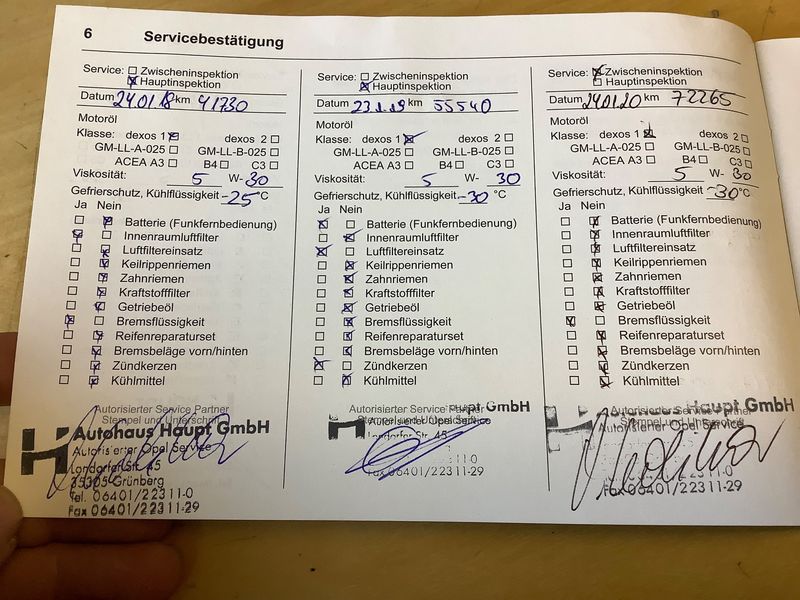 6 Servicebestätigung
Service: Zwischeninspektion
Hauptinspektion
Datum 24.01.18 km 41730
Motoröl
Klasse: dexos 1 dexos 2
GM-LL-A-025 GM-LL-B-025
ACEA A3 B4 C3
Viskosität: 5 W- 30
Gefrierschutz, Kühlflüssigkeit -25 °C
Ja Nein
Batterie (Funkfernbedienung)
Innenraumluftfilter
Luftfiltereinsatz
Keilrippenriemen
Zahnriemen
Kraftstofffilter
Getriebeöl
Bremsflüssigkeit
Reifenreparaturset
Bremsbeläge vorn/hinten
Zündkerzen
Kühlmittel
Autorisierter Service Partner
Stempel und Unterschrift
Autohaus Haupt GmbH
Autorisierter Opel Service
Londorfer Str. 45
35305 Grünberg
Tel. 06401/22311-0
Fax 06401/22311-29
Service: Zwischeninspektion
Hauptinspektion
Datum 23.1.19 km 55540
Motoröl
Klasse: dexos 1 dexos 2
GM-LL-A-025 GM-LL-B-025
ACEA A3 B4 C3
Viskosität: 5 W- 30
Gefrierschutz, Kühlflüssigkeit -30 °C
Ja Nein
Batterie (Funkfernbedienung)
Innenraumluftfilter
Luftfiltereinsatz
Keilrippenriemen
Zahnriemen
Kraftstofffilter
Getriebeöl
Bremsflüssigkeit
Reifenreparaturset
Bremsbeläge vorn/hinten
Zündkerzen
Kühlmittel
Autorisierter Service Partner
Stempel und Unterschrift
Haupt GmbH
Autorisierter Opel Service
Londorfer Str. 45
Fax 06401/22311-29
Service: Zwischeninspektion
Hauptinspektion
Datum 24.01.20 km 72265
Motoröl
Klasse: dexos 1 dexos 2
GM-LL-A-025 GM-LL-B-025
ACEA A3 B4 C3
Viskosität: 5 W- 30
Gefrierschutz, Kühlflüssigkeit -30 °C
Ja Nein
Batterie (Funkfernbedienung)
Innenraumluftfilter
Luftfiltereinsatz
Keilrippenriemen
Zahnriemen
Kraftstofffilter
Getriebeöl
Bremsflüssigkeit
Reifenreparaturset
Bremsbeläge vorn/hinten
Zündkerzen
Kühlmittel
Autorisierter Service Partner
Stempel und Unterschrift
Haupt GmbH
Autorisierter Opel Service
Fax 06401/22311-29